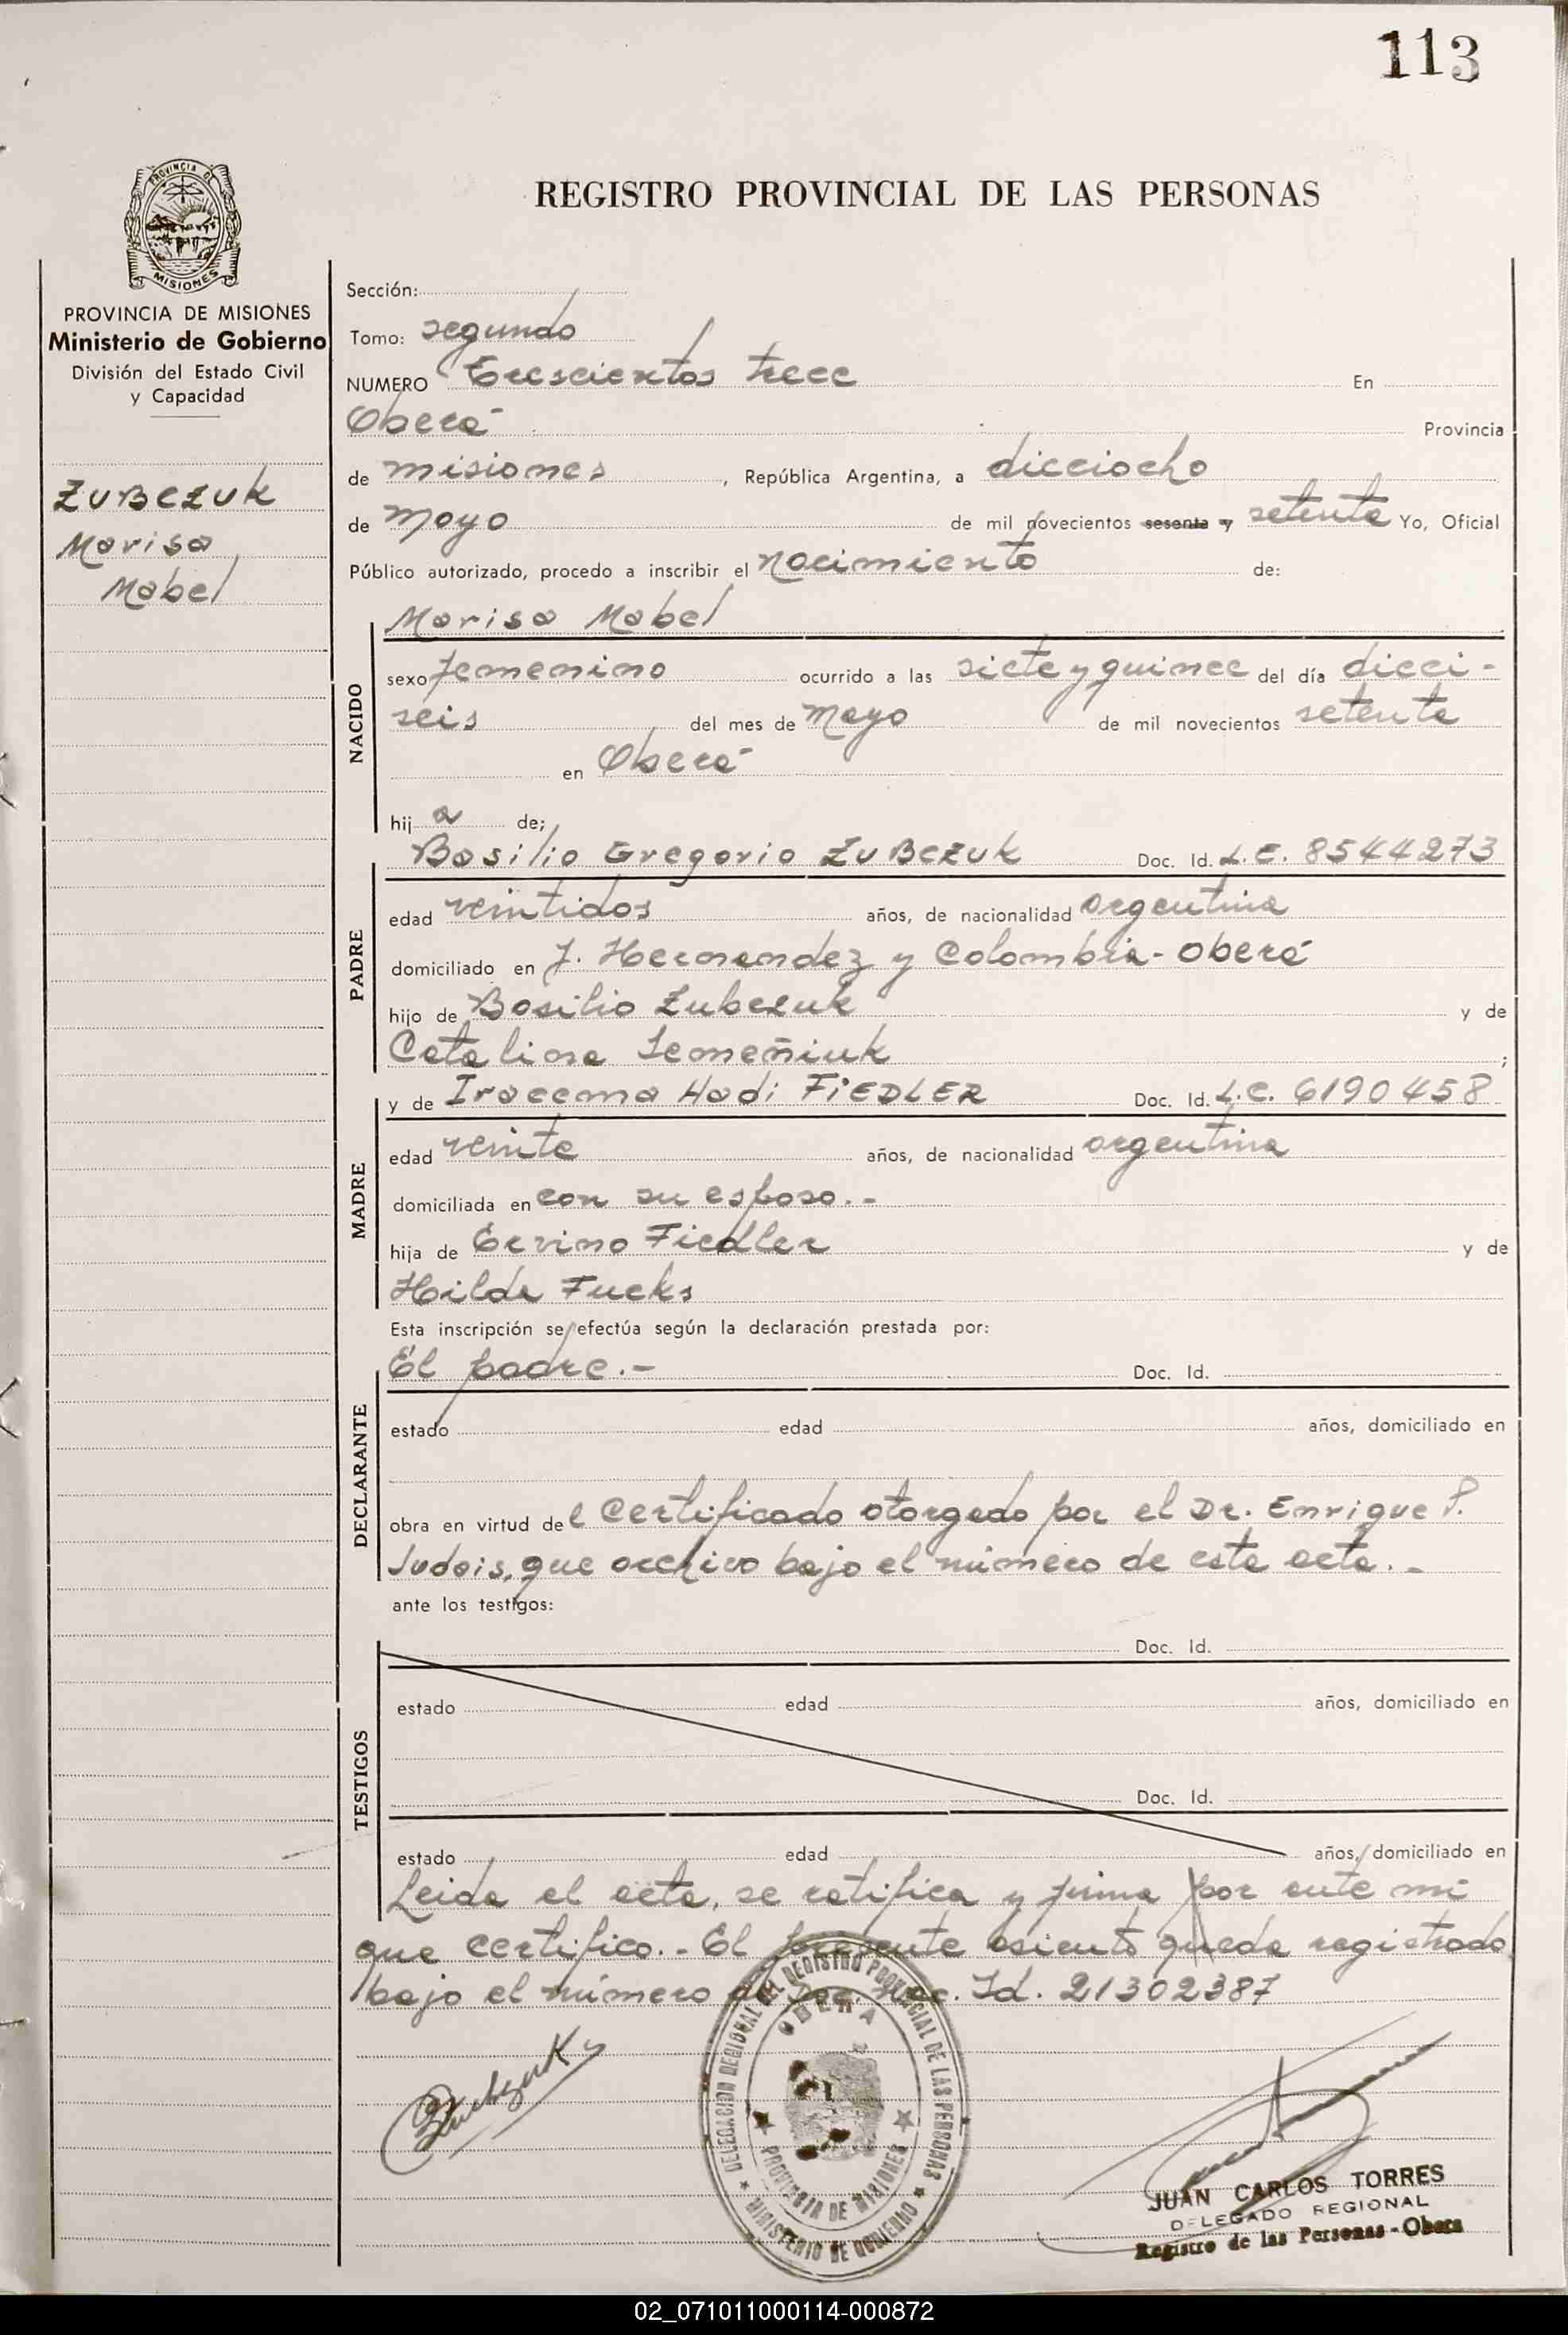 113
REGISTRO PROVINCIAL DE LAS PERSONAS
PROVINCIA DE MISIONES
PROVINCIA DE MISIONES
Ministerio de Gobierno
División del Estado Civil
y Capacidad
ZUBCZUK
Marisa
Mabel
Sección:
Tomo: segundo
NUMERO Trescientos trece En
Oberá Provincia
de misiones, República Argentina, a dieciocho
de mayo de mil novecientos sesenta y setenta Yo, Oficial
Público autorizado, procedo a inscribir el nacimiento de:
Marisa Mabel
NACIDO
sexo femenino ocurrido a las siete y quince del día dieci-
seis del mes de mayo de mil novecientos setenta
en Oberá
hija de;
Basilio Gregorio ZUBCZUK Doc. Id. L.E. 8544273
PADRE
edad veintidos años, de nacionalidad argentina
domiciliado en J. Hernandez y Colombia - Oberá
hijo de Basilio Zubczuk y de
Catalina Semeñiuk;
y de Iracema Hadi FiEDLER Doc. Id. L.C. 6190458
MADRE
edad veinte años, de nacionalidad argentina
domiciliada en con su esposo.-
hija de Ervino Fiedler y de
Hilda Fucks
Esta inscripción se efectúa según la declaración prestada por:
El padre.- Doc. Id.
DECLARANTE
estado edad años, domiciliado en
obra en virtud del Certificado otorgado por el Dr. Enrique P.
Judais, que archivo bajo el número de esta acta.-
ante los testigos:
Doc. Id.
TESTIGOS
estado edad años, domiciliado en
Doc. Id.
estado edad años, domiciliado en
Leida el acta, se ratifica y firma por ante mi
que certifico.- El presente asiento queda registrado
bajo el número de Doc. Nac. Id. 21302387
DELEGACION REGIONAL DEL REGISTRO PROVINCIAL DE LAS PERSONAS
OBERA
PROVINCIA DE MISIONES
MINISTERIO DE GOBIERNO
JUAN CARLOS TORRES
DELEGADO REGIONAL
Registro de las Personas - Obera
02_071011000114-000872